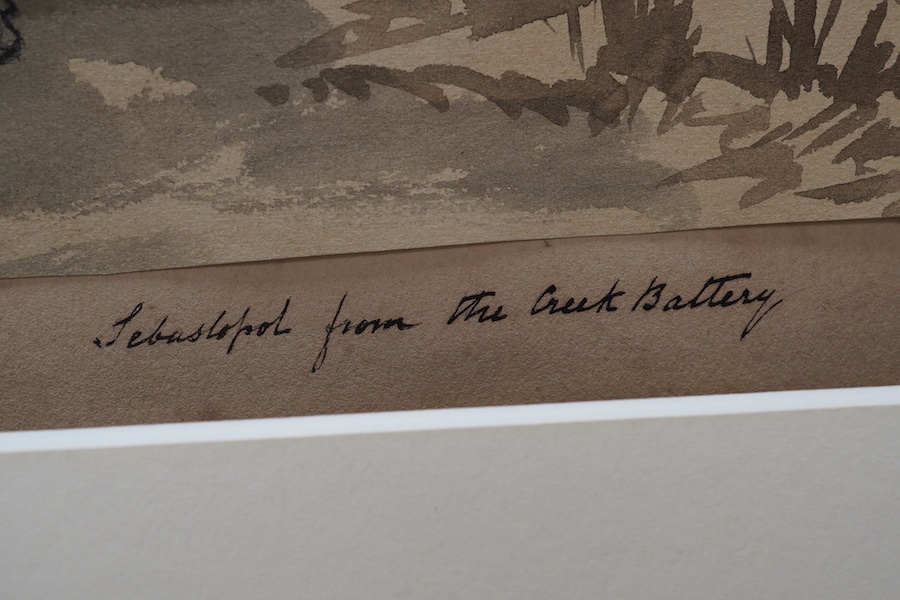 Sebastopol from the Creek Battery